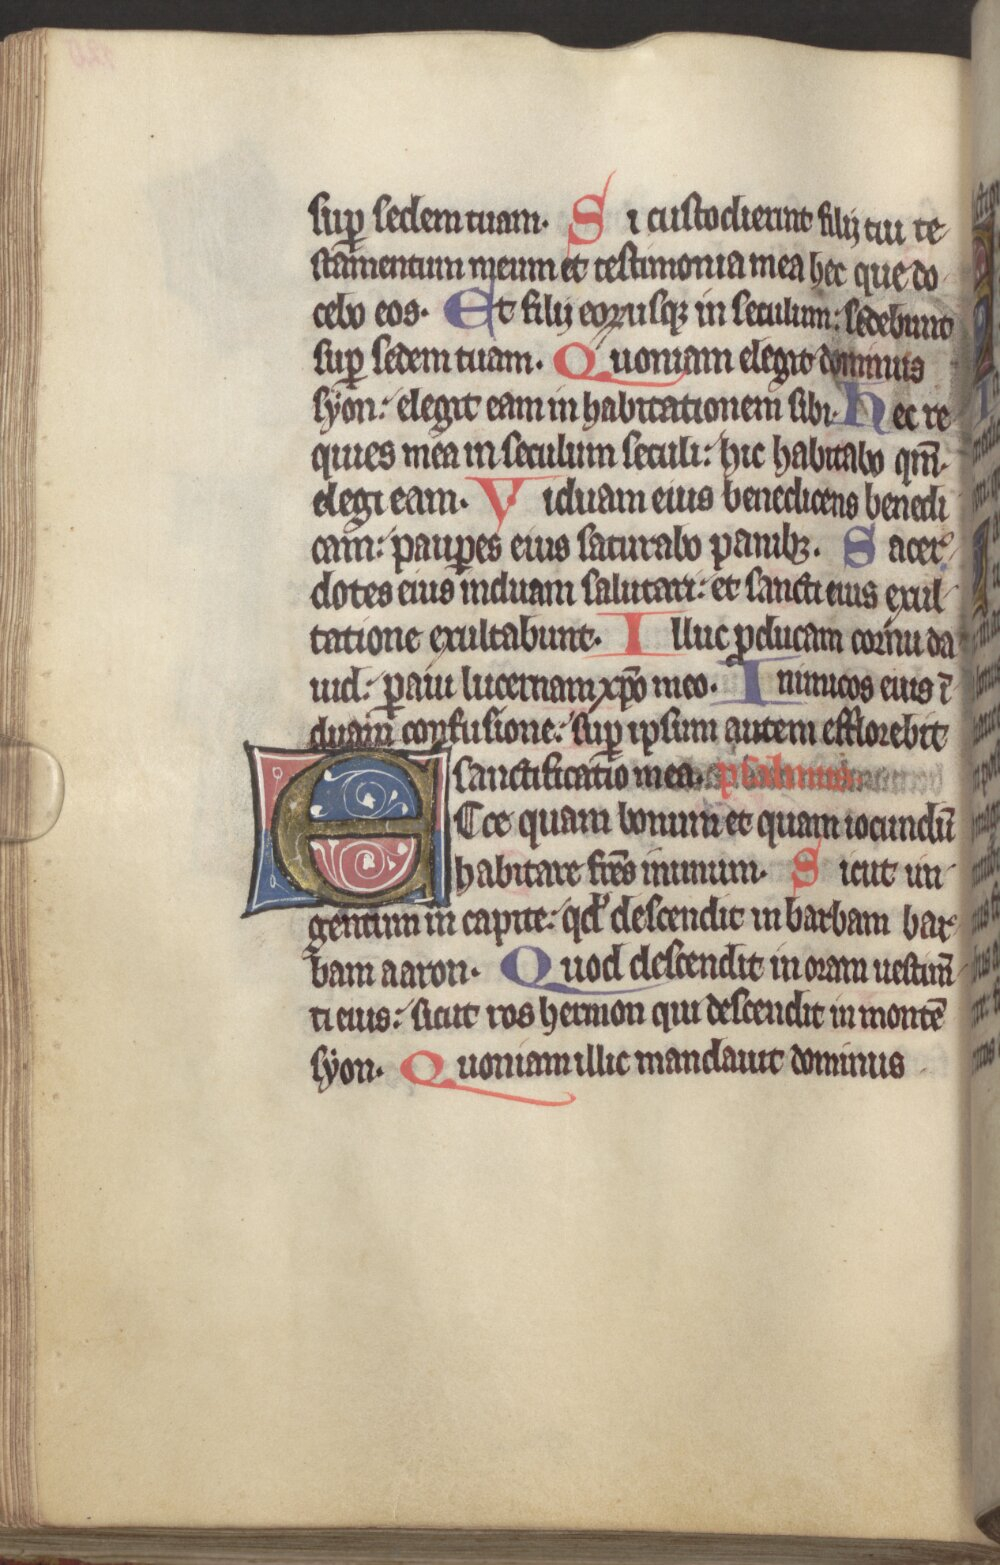 sup̱ sedem tuam. Si custodierint filij tui te
stamentum meum et testimonia mea hec que do
cebo eos. Et filij eoꝝ usqꝫ in seculum: sedebunt
sup̱ sedem tuam. Quoniam elegit dominus
syon: elegit eam in habitationem sibi. Hec re
quies mea in seculum seculi: hic habitabo qm̄
elegi eam. Viduam eius benedicens benedi
cam: paup̱es eius saturabo panibꝫ. Sacer
dotes eius induam salutari: et sancti eius exul
tatione exultabunt. Illuc ꝑducam cornu da
uid: paͣui lucernam xp̄o meo. Inimicos eius ī
duam confusione: sup̱ ipsum autem efflorebit
sanctificatio mea. psalmus
Ecce quam bonum et quam iocundū
habitare fr̄es inunum. Sicut un
gentum in capite: qd' descendit in barbam bar
bam aaron. Quod descendit in oram uestim̄
ti eius: sicut ros hermon qui descendit in montē
syon. Quoniam illic mandauit dominus